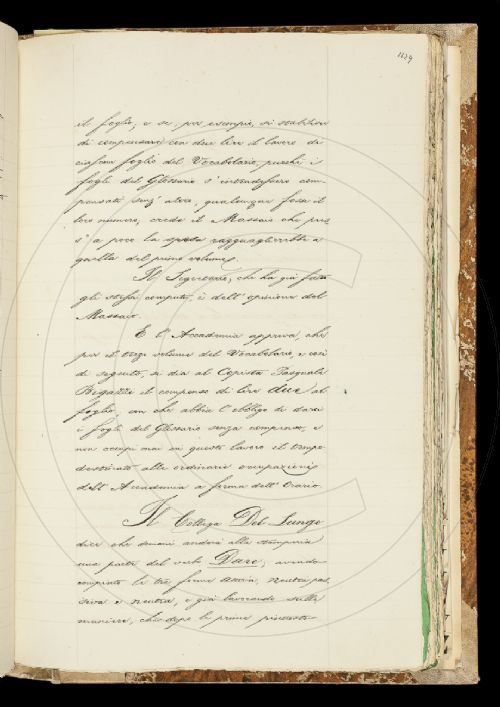 1139
il foglio; e se, per esempio, si stabilisse
di compensare con due lire il lavoro di
ciascun foglio del Vocabolario, purchè i
fogli del Glossario s'intendessero com-
pensati senz'altro, qualunque fosse il
loro numero, crede il Massaio che press'
a poco la spesa ragguaglierebbe a
quella del primo volume.
Il Segretario, che ha già fatto
gli stessi computi, è dell'opinione del
Massaio.
E l'Accademia approva, che
per il terzo volume del Vocabolario, e così
di seguito, si dia al Copista Pasquale
Bigazzi il compenso di lire due al
foglio, con che abbia l'obbligo di dare
i fogli del Glossario senza compenso, e
non occupi mai in questo lavoro il tempo
destinato alle ordinarie occupazioni
dell'Accademia a forma dell'Orario.
Il Collega Del Lungo
dice che domani anderà alla stamperia
una parte del verbo Dare, avendo
compiuto le tre forme attiva, neutra pas-
siva e neutra, e già lavorando sulle
maniere, che dopo le prime